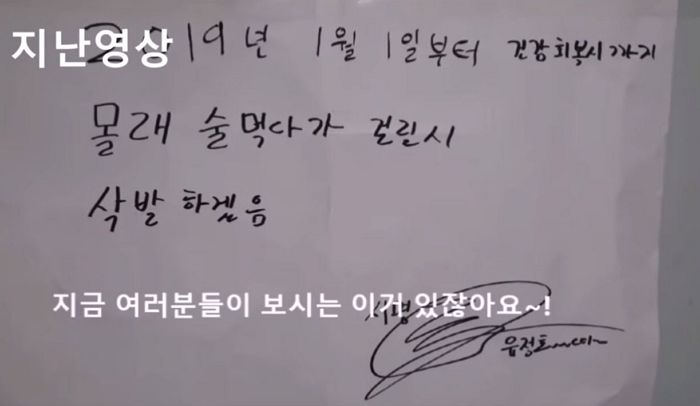 지난영상
2019년 1월 1일부터 건강회복시까지
몰래 술먹다가 걸린시
삭발 하겠음
지금 여러분들이 보시는 이거 있잖아요~!
서명
유정호